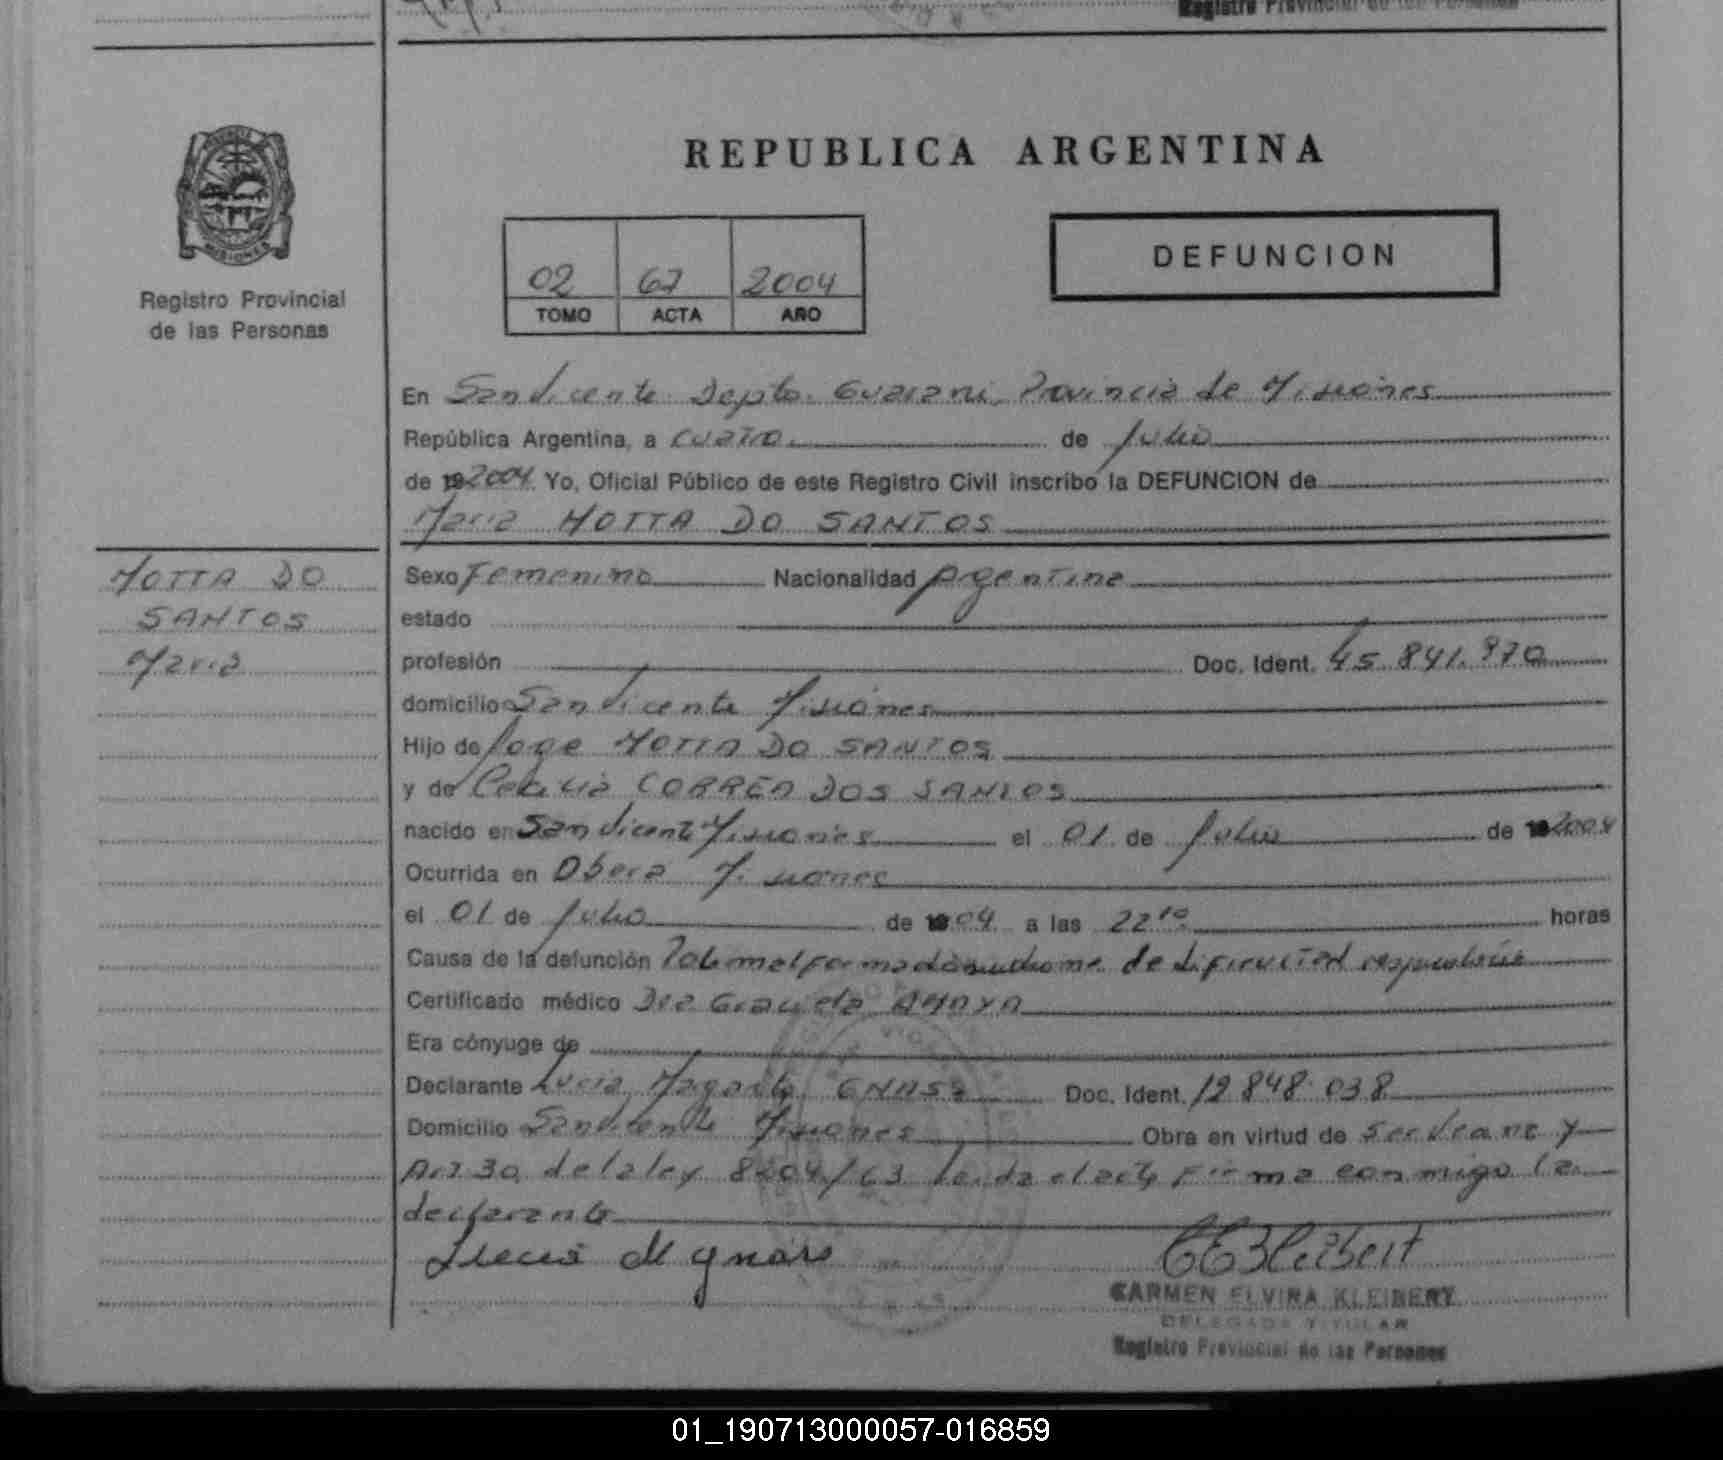 Registro Provincial de las Personas
PROVINCIA
MISIONES
Registro Provincial
de las Personas
REPUBLICA ARGENTINA
02 67 2004
TOMO ACTA AÑO
DEFUNCION
En San Vicente Depto. Guarani, Provincia de Misiones
República Argentina, a cuatro de Julio
de 19 2004 Yo, Oficial Público de este Registro Civil inscribo la DEFUNCION de
Maria MOTTA DO SANTOS
MOTTA DO
SANTOS
Maria
Sexo Femenino Nacionalidad Argentina
estado
profesión Doc. Ident. 45.841.970
domicilio San Vicente Misiones
Hijo de Jorge MOTTA DO SANTOS
y de CORREA DOS SANTOS
nacido en San Vicente Misiones el 01 de Julio de 19 2004
Ocurrida en Obera Misiones
el 01 de Julio de 19 04 a las 22 10 horas
Causa de la defunción Polimalformado sindrome de dificultad respiratoria
Certificado médico Dra Graciela AMAYA
Era cónyuge de
Declarante Lucia Margarita Doc. Ident. 12 848 038
Domicilio San Vicente Misiones Obra en virtud de ser Verane y
Art 30 de la ley 8204/63 leida el acta firma conmigo la
declarante
CARMEN ELVIRA KLEIBERT
DELEGADA TITULAR
Registro Provincial de las Personas
01_190713000057-016859